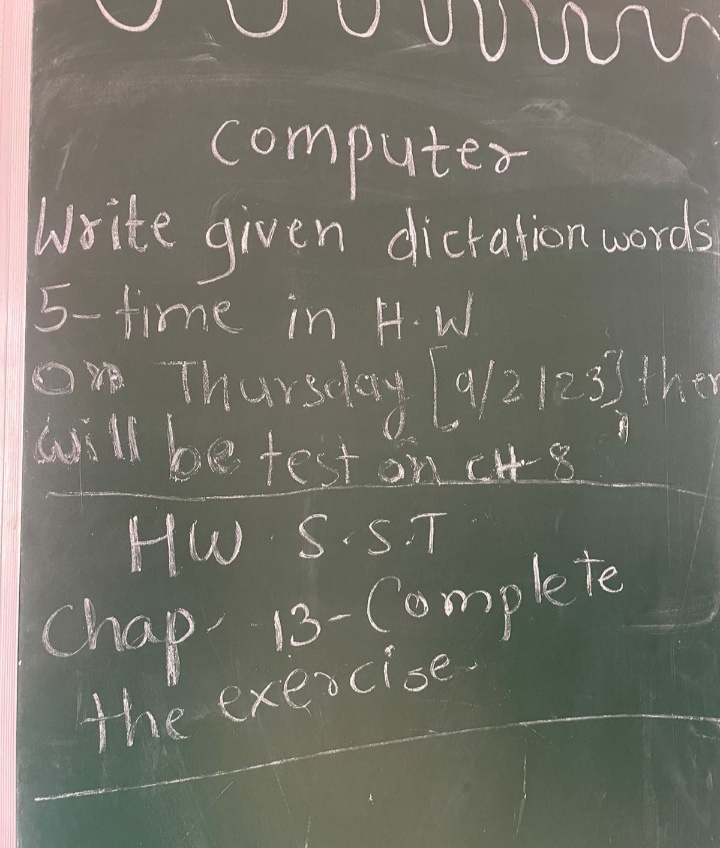 computer
Write given dictation words
5-time in H.W
on Thursday [9/2123] ther
will be test on CH-8
HW S.S.T
Chap. 13-Complete
the exercise